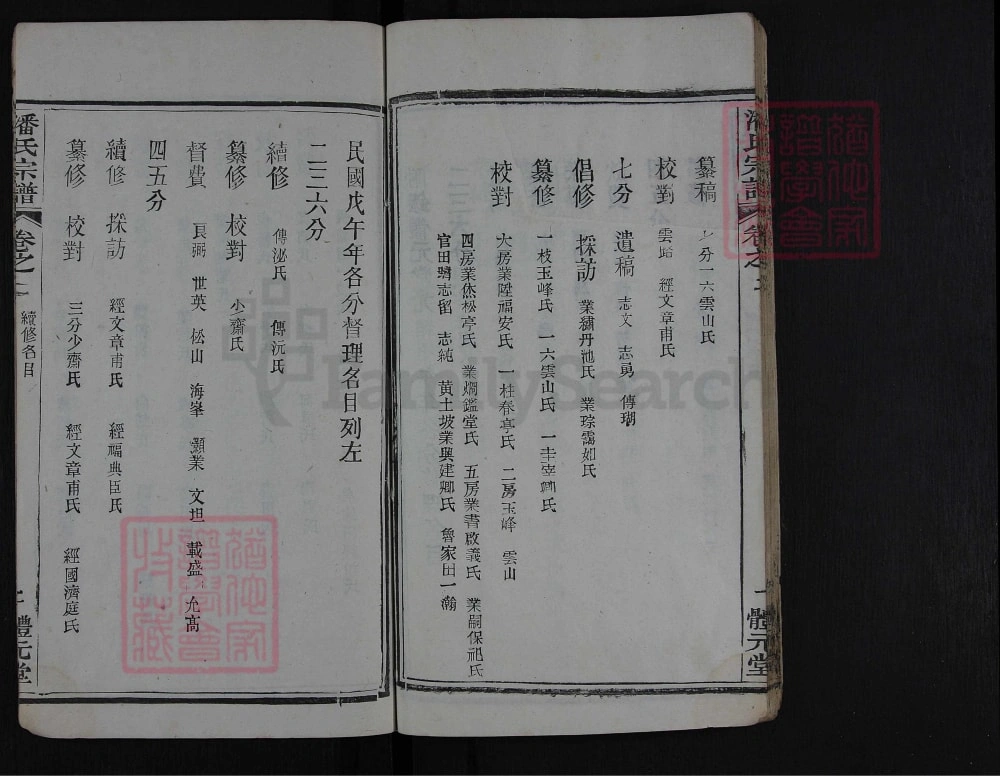 纂稿 七分一六雲山氏
校對 雲路 經文章甫氏
七分 遺稿 志文 志勇 傳瑚
倡修 採訪 業繡丹池氏 業琮靄如氏
纂修 一枝玉峰氏 一六雲山氏 一圭宰卿氏
校對 大房業陞福安氏 一桂春亭氏 二房玉峰 雲山
四房業烋松亭氏 業爛鑑堂氏 五房業書啟義氏 業嗣保祀氏
官田 志留 志純 黃土坡業興建卿氏 魯家田一瀚
體元堂
民國戊午年各分督理名目列左
二三六分
續修 傳泌氏 傳沅氏
纂修 校對 小齋氏
督費 良弼 世英 松山 海峯 顯業 文坦 載盛 允高
四五分
續修 採訪 經文章甫氏 經福典臣氏
纂修 校對 三分少齋氏 經文章甫氏 經國濟庭氏
潘氏宗譜 卷之 續修名目 體元堂
FamilySearch